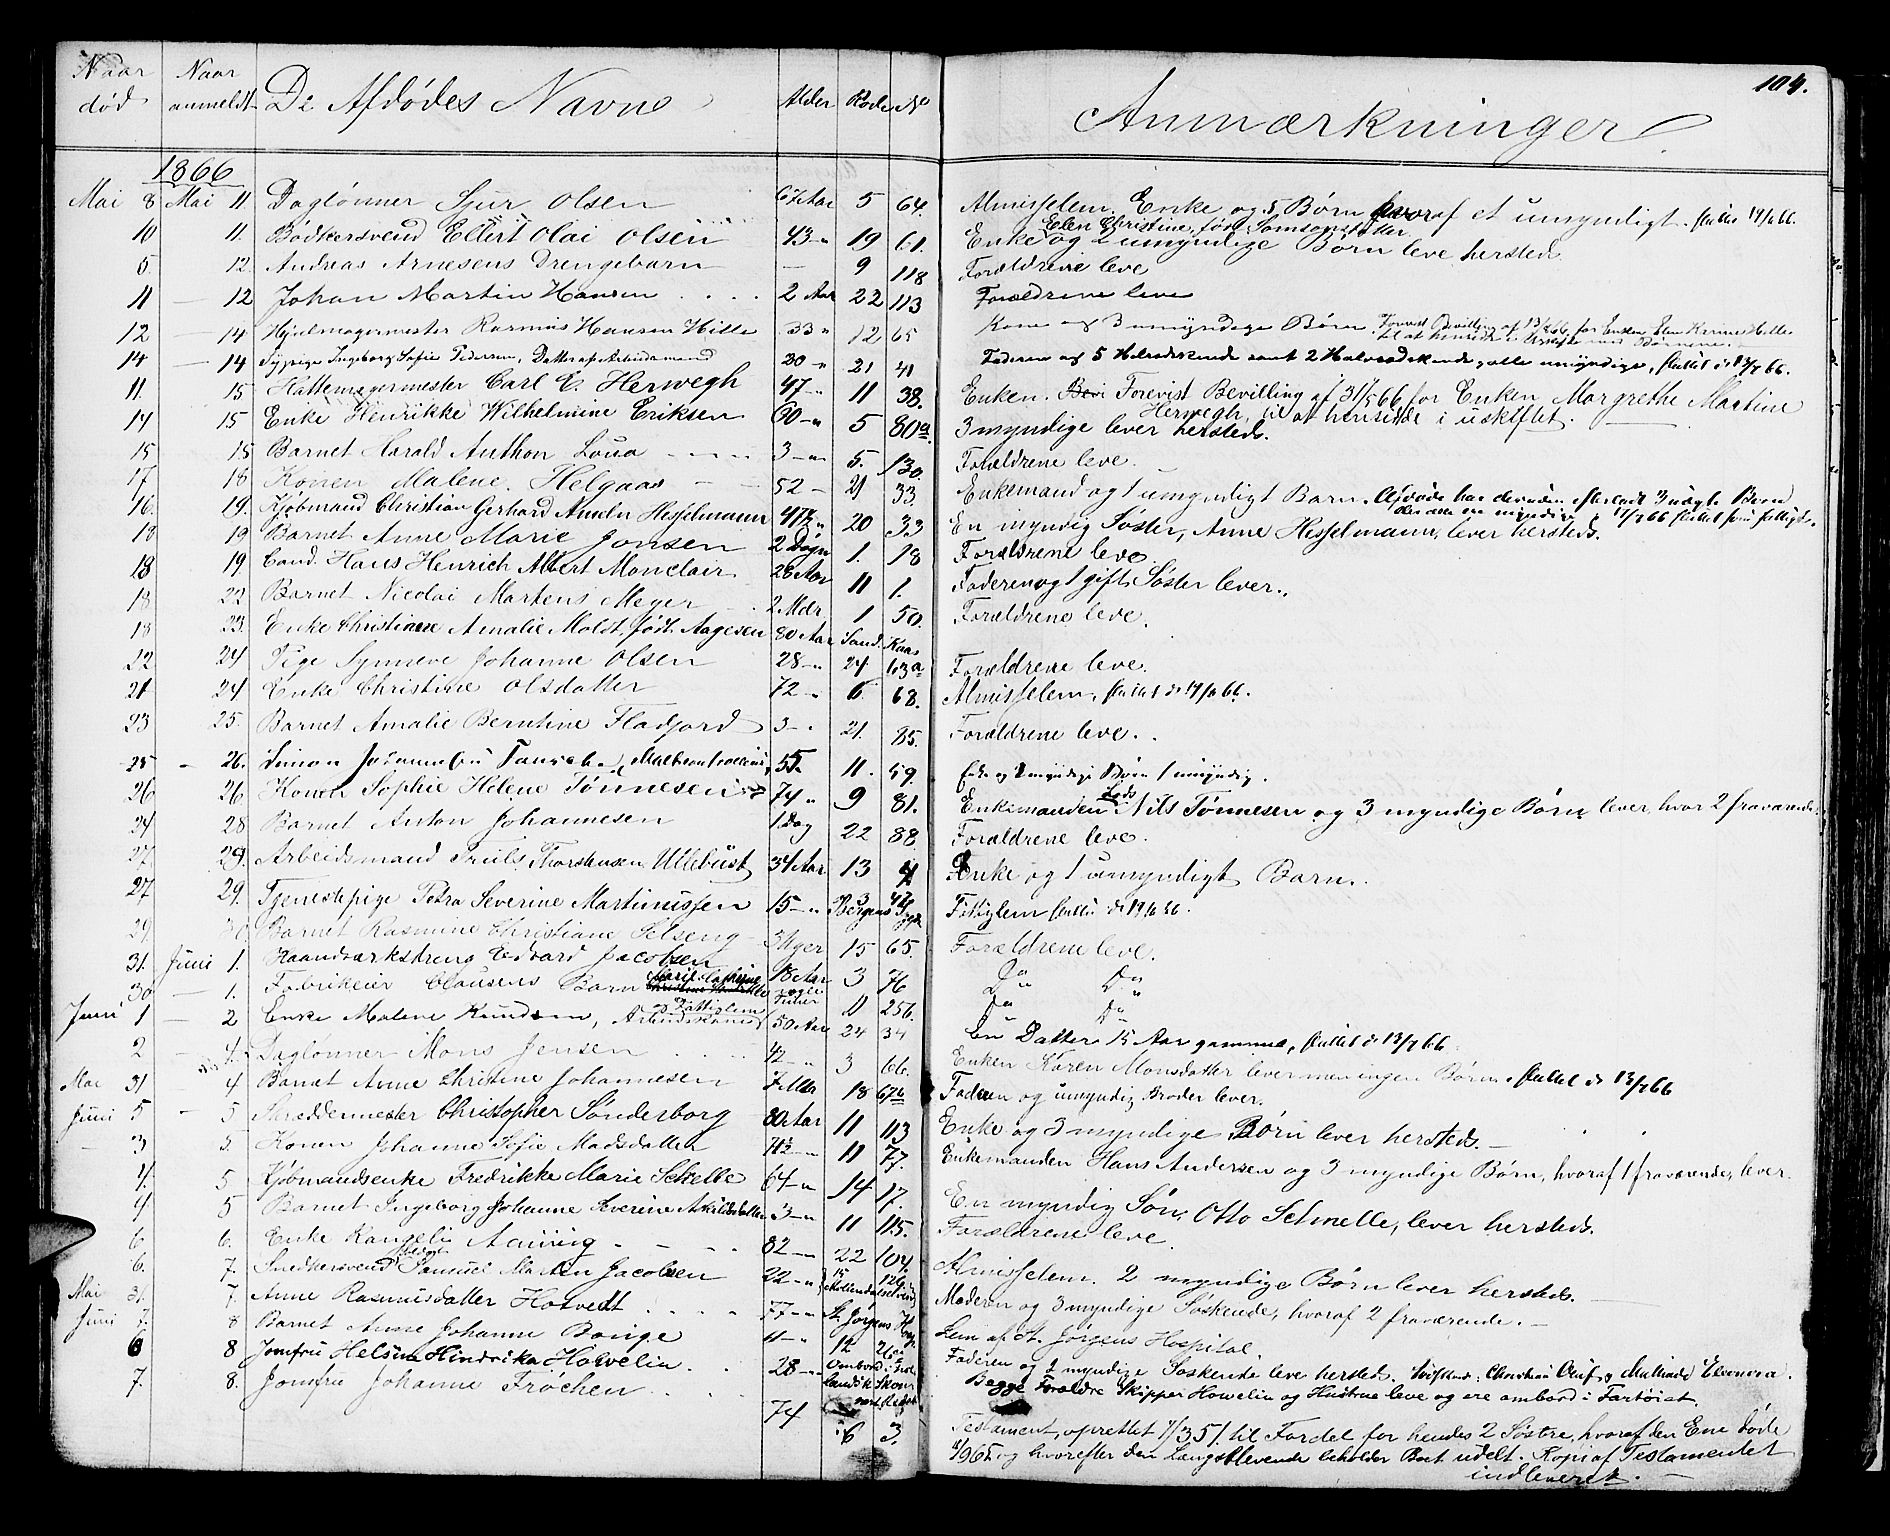 104.
Naar død Naar anmeldt De Afdødes Navne Alder Rode No Anmærkninger
1866
Mai 8 Mai 11. Daglønner Sjur Olsen 67 Aar 5 64. Almisselem. Enke og 5 Børn hvoraf et umyndigt. sluttet 19/6 66.
10 11. Bødkersvend Ellert Olai Olsen 43 " 19 61. Enke Elen Christine, født Samsonsdatter og 2 umyndige Børn leve hersteds.
5. 12. Andreas Arnesens Drengebarn — 9 118 Forældrene leve
11 — 12 Johan Martin Hansen 2 Aar 22 113 Forældrene leve
12 — 14 Hjulmagermester Rasmus Hansen Hille 33 " 12 65 Kone og 3 umyndige Børn.
14 — 14 Sypige Ingeborg Sofie Pedersen, Datter af Arbeidsmand 20 " 21 41 Faderen og 5 Helsødskende samt 2 Halvsødskende, alle umyndige, sluttet d 13/7 66.
11. 15 Hattemagermester Carl E. Herwegh 47 " 11 38. Enken. Forevist Bevilling af 31/5 66 for Enken Margrethe Martine Herwegh, til at hensidde i uskiftet.
14 15 Enke Henrikke Wilhelmine Eriksen 60 " 5 80a. 3 myndige lever hersteds.
15 15 Barnet Harald Anthon Loua 3 " 5. 130. Forældrene leve.
17 18 Konen Malene Helgaas 52 21 33. Enkemand og 1 umyndigt Barn.
16. 19. Kjøbmand Christian Gerhard Ameln Hesselmann 47½ " 20 33 En myndig Søster, Anne Hesselmann, lever hersteds.
18 19 Barnet Anne Marie Jonsen 2 Døgn 1. 18 Forældrene leve
18 19. Cand. Hans Henrich Albert Monclair 28 Aar 11 1. Faderen og 1 gift Søster lever.
18 22 Barnet Nicolai Martens Meyer 2 Mdr 1 50. Forældrene leve.
18 23. Enke Christiane Amalie Moldt, født Aagesen 80 Aar Sand. Kaas
22 24 Pige Synneve Johanne Olsen 28 " 24 103a Forældrene leve.
21 24 Enke Christine Olsdatter 72 " 6. 68. Almisselem, sluttet d 19/6 66.
23 25. Barnet Amalie Berntine Fladjord 3 " 21. 85. Forældrene leve.
25 " 26. Simon Johannessen 55. 11. 59. Enke og 2 myndige Børn 1 umyndig.
26 26 Konen Sophie Helene Tønnesen 74 " 9 81. Enkemanden Lods Nils Tønnesen og 3 myndige Børn lever, hvor 2 fraværende.
24 28 Barnet Anton Johannesen 1 Dag 22 88 Forældrene leve.
27 29. Arbeidsmand Truls Thorstensen Ullebust 34 Aar 13 4 Enke og 1 umyndigt Barn.
27 29. Tjenestepige Petra Severine Martinussen 15 " Bergens Fattiglem sluttet d 19/6 66.
29 30. Barnet Rasmine Christiane Selseng 3 Uger 15 65. Forældrene leve.
31. Juni 1. Haandværksdreng Edvard Jacobsen 18 Aar 3 76 Do Do
30 — 1. Fabrikeier Clausens Barn Marie Cathrine 11 256. Do Do
Juni 1 — 2 Enke Malene Knudsen, Arbeidskone og Fattiglem 50 Aar 24 34 En Datter 15 Aar gammel, sluttet d 13/7 66.
2 — 4. Daglønner Mons Jensen 42 " 3 66. Enken Karen Monsdatter lever men ingen Børn. sluttet d 13/7 66
Mai 31 4 Barnet Anne Christine Johannesen 7 Mdr 18 67b Faderen og umyndig Broder lever.
Juni 5 — 5 Skræddermester Christopher Sønderborg 80 Aar 11 113 Enke og 3 myndige Børn lever hersteds.
— 3 5. Konen Johanne Sofie Madsdatter 71½ " 11 77. Enkemanden Hans Andersen og 3 myndige Børn, hvoraf 1 fraværende, lever.
4. 5 Kjøbmandsenke Fredrikke Marie Schelle 64 " 14 17. En myndig Søn, Otto Schnelle, lever hersteds.
4 5 Barnet Ingeborg Johanne Severine Askildsdatter 3 " 11 115. Forældrene leve.
6 6. Enke Kangelie Aaning 82 " 22 104. Almisselem. 2 myndige Børn lever hersteds.
6. 7. Snedkersvend Samuel Morten Jacobsen 22 " 15 126. Moderen og 3 myndige Søskende, hvoraf 2 fraværende.
Mai 31. 7. Anne Rasmusdatter Hotvedt 77 " St. Jørgens Hosp. Lem af St. Jørgens Hospital
Juni 7. 8 Barnet Anne Johanne Bonge 11 " 12 26a Faderen og 2 myndige Søskende leve hersteds.
6 8 Jomfru Helsine Hindrika Howelin 28 " Ombord i Skon Begge Forældre Skipper Howelin og Hustrue leve og ere ombord i Fartøiet.
7. 8. Jomfru Johanne Frøchen 74 6 3. Testament, oprettet 1/7 51 til Fordel for hendes 2 Søstre, hvoraf den Ene døde
og hvorefter den Længstlevende beholder Boet udelt. Kopi af Testamentet
indleveret.